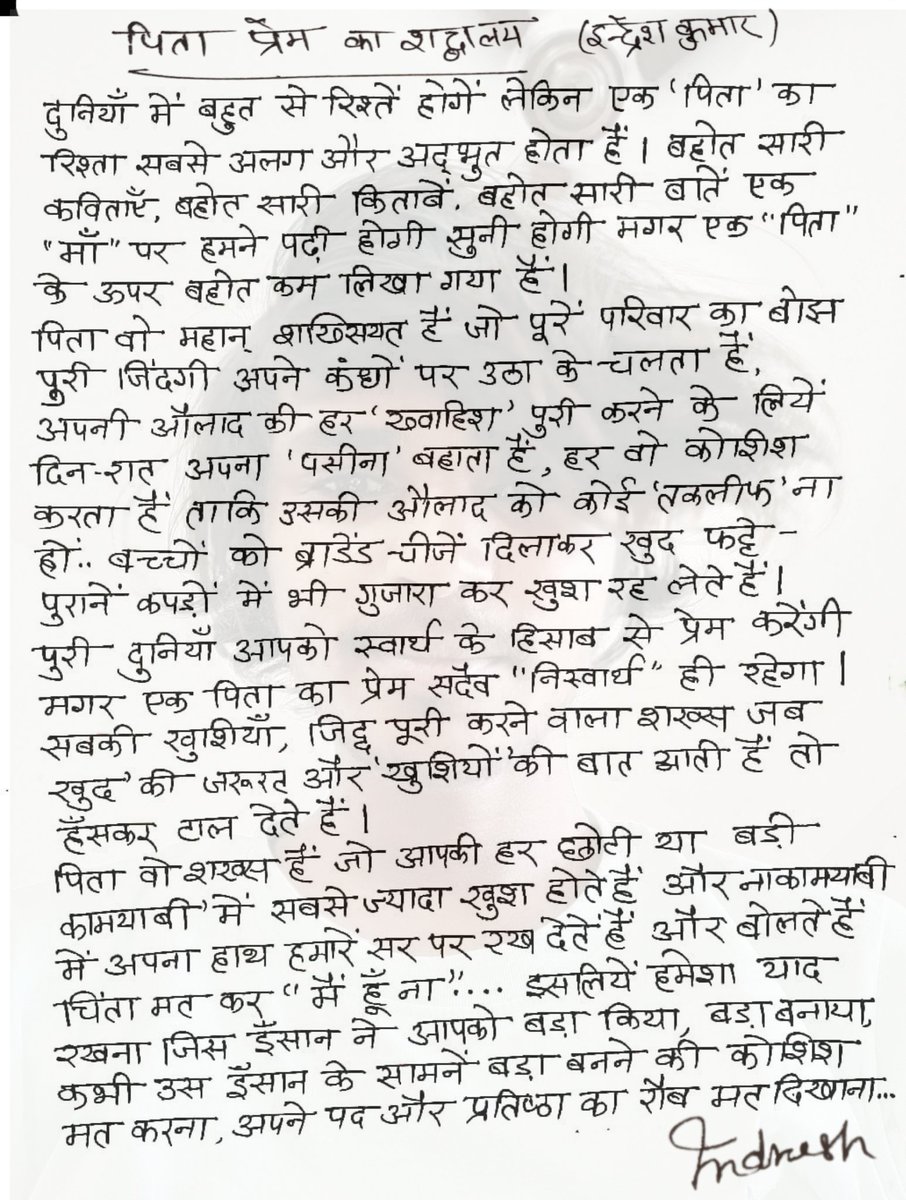 पिता प्रेम का शद्बालय (इन्द्रेश कुमार)
दुनियाँ में बहुत से रिश्तें होगें लेकिन एक 'पिता' का
रिश्ता सबसे अलग और अद्भुत होता हैं। बहोत सारी
कविताएँ, बहोत सारी किताबें, बहोत सारी बातें एक
"माँ" पर हमने पढ़ी होगी सुनी होगी मगर एक "पिता"
के ऊपर बहोत कम लिखा गया हैं।
पिता वो महान् शख्सियत हैं जो पूरें परिवार का बोझ
पुरी जिंदगी अपने कंधों पर उठा के चलता हैं,
अपनी औलाद की हर 'ख्वाहिश' पुरी करने के लियें
दिन-रात अपना 'पसीना' बहाता हैं, हर वो कोशिश
करता हैं ताकि उसकी औलाद को कोई 'तकलीफ' ना
हों.. बच्चों को ब्राडेंड चीजें दिलाकर खुद फट्टे-
पुरानें कपड़ो में भी गुजारा कर खुश रह लेते हैं।
पुरी दुनियाँ आपको स्वार्थ के हिसाब से प्रेम करेंगी
मगर एक पिता का प्रेम सदैव "निस्वार्थ" ही रहेगा।
सबकी खुशियाँ, जिद्द पूरी करने वाला शख्स जब
खुद' की जरूरत और 'खुशियों' की बात आती हैं तो
हँसकर टाल देते हैं।
पिता वो शख्स हैं जो आपकी हर छोटी या बड़ी
कामयाबी' में सबसे ज्यादा खुश होते हैं और नाकामयाबी
में अपना हाथ हमारें सर पर रख देतें हैं और बोलते हैं
चिंता मत कर "मैं हूँ ना"... इसलियें हमेशा याद
रखना जिस इँसान ने आपको बड़ा किया, बड़ा बनाया,
कभी उस इँसान के सामनें बड़ा बनने की कोशिश
मत करना, अपने पद और प्रतिष्ठा का रौब मत दिखाना...
Indresh